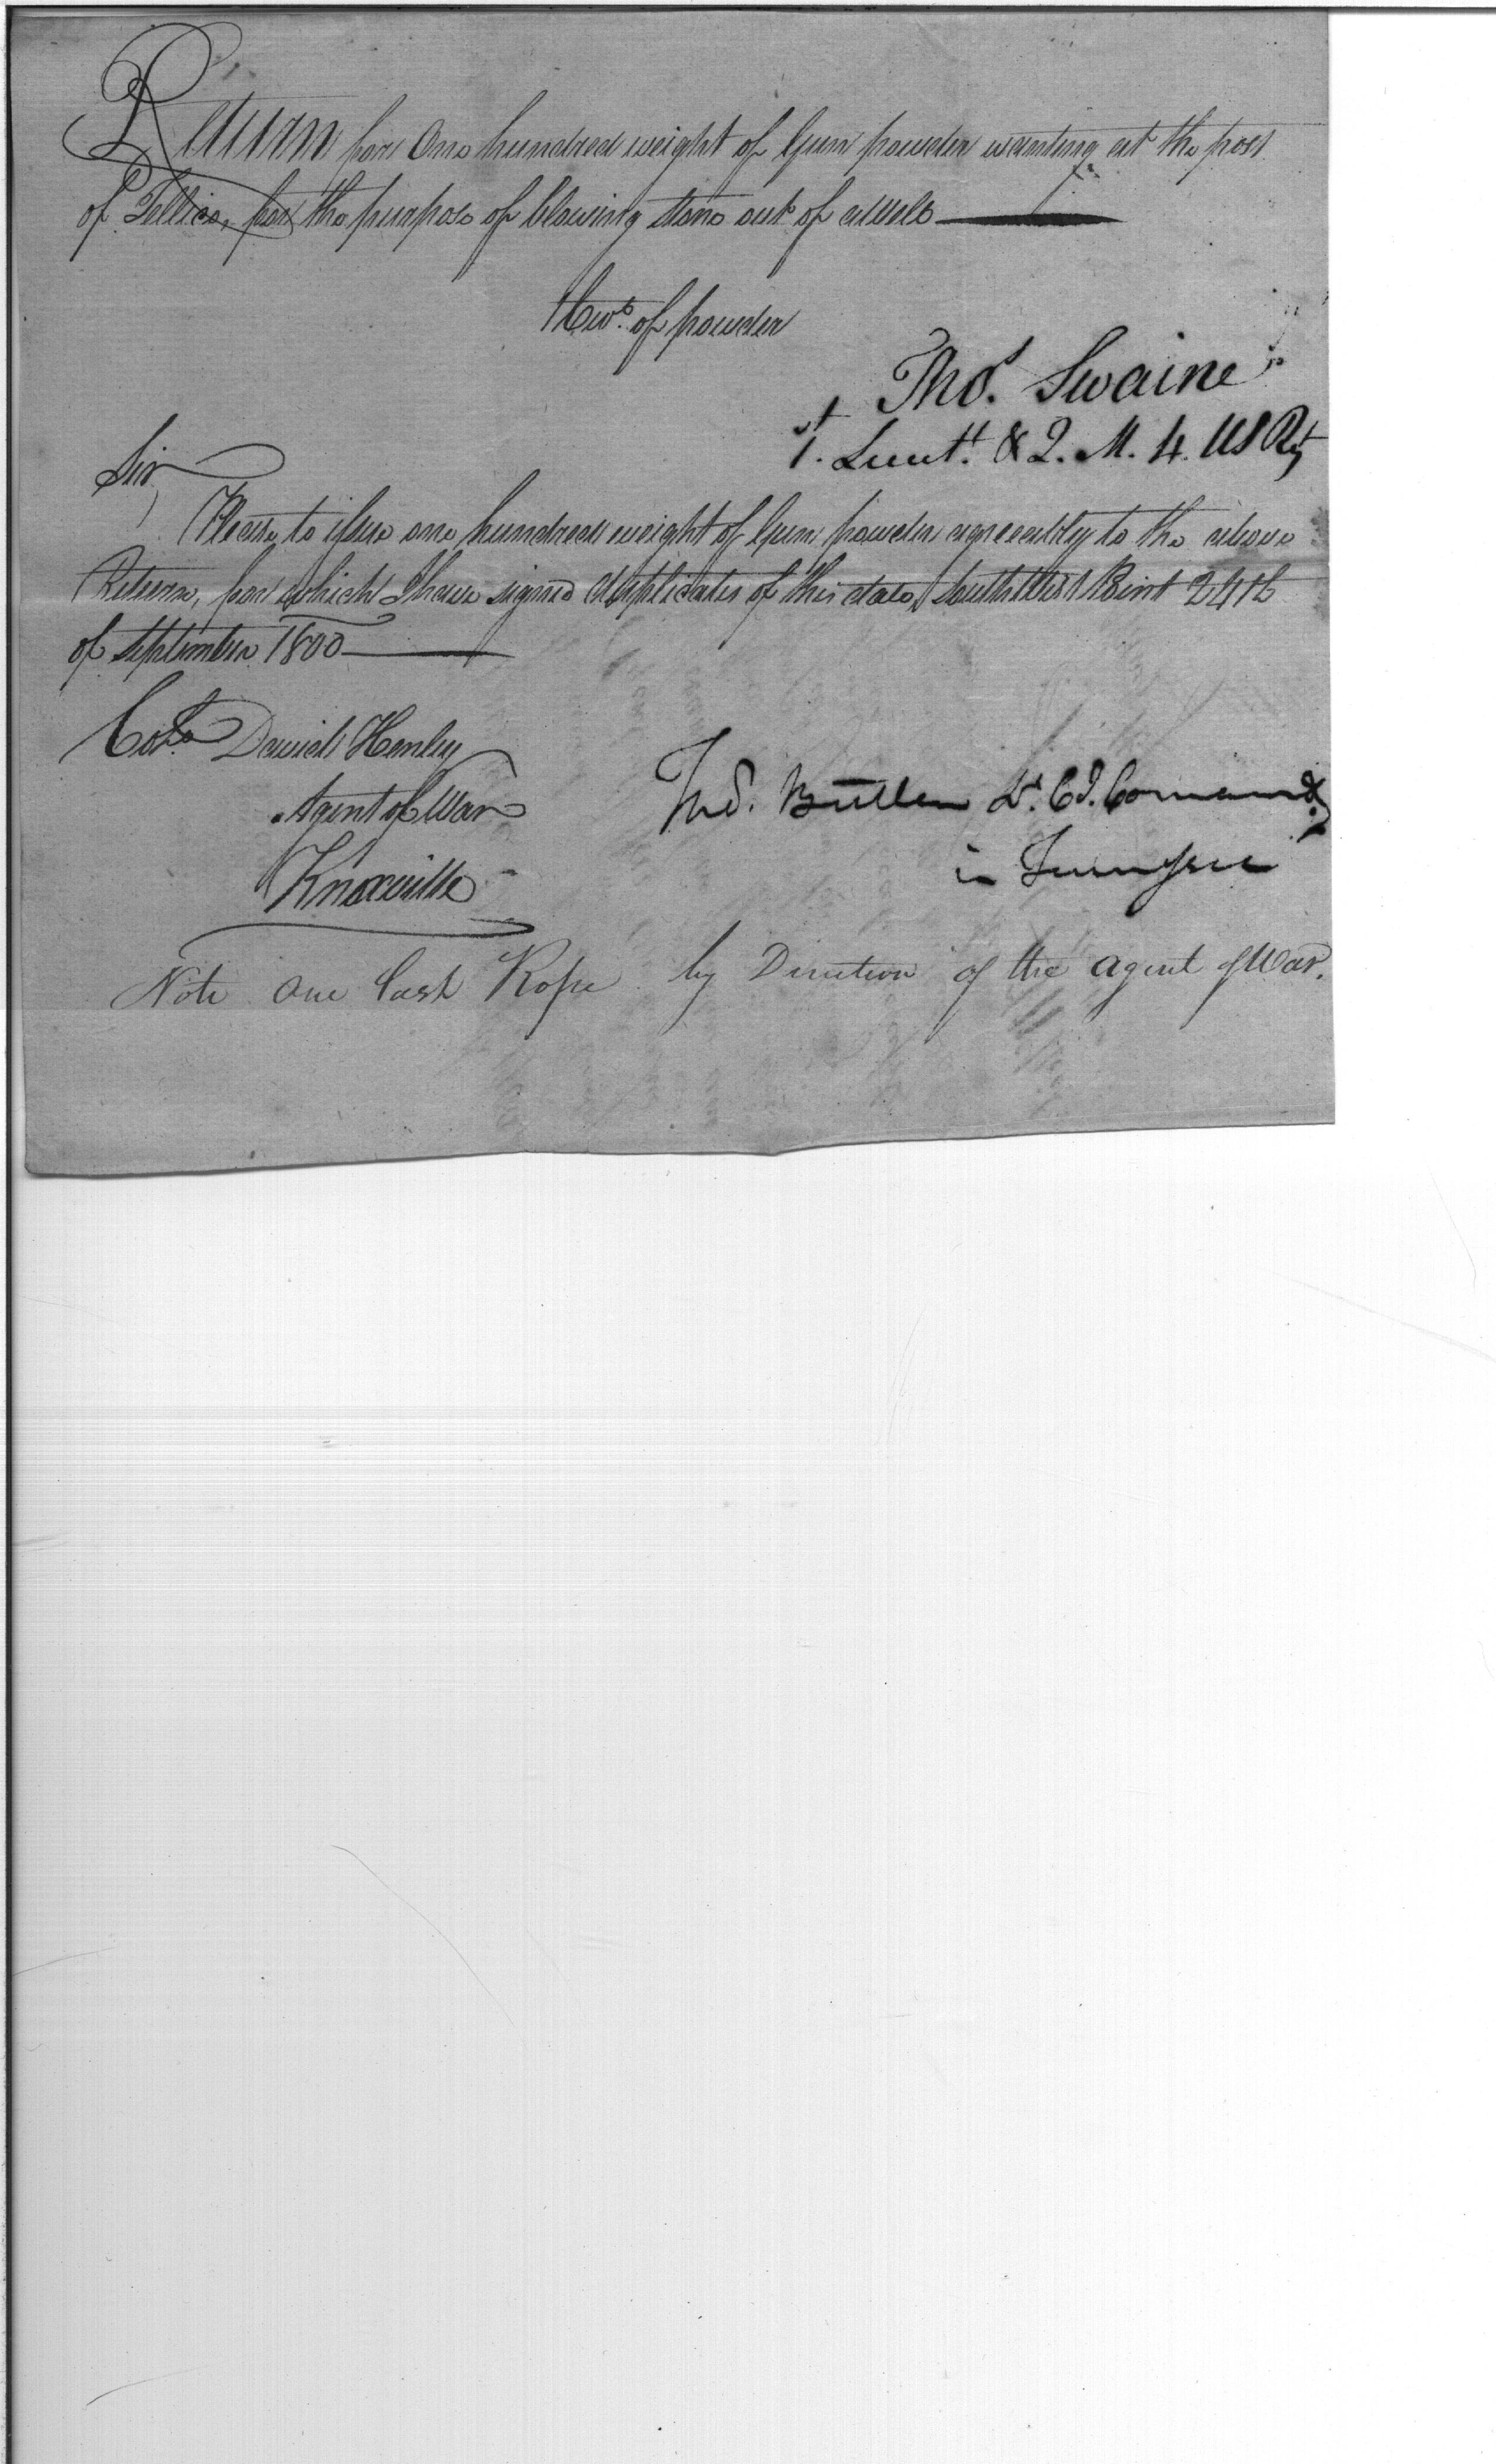 Return for One hundred weight of Gun powder wanting at the post
of Tellico, for the purpose of blowing stone out of a well
1 Cwt. of powder
Thos. Swaine
1st. Lieutt. & Q. M. 4. US Regt
Sir
Please to issue one hundred weight of Gun powder agreeably to the above
Return, for which I have signed duplicates of this date, South West Point 24th
of September 1800
Colo. David Henley
Agent of War
Knoxville
Thos. Butler Lt. Col. Comand.
in Tennessee
Note One Cask Rope by Direction of the Agent of War.